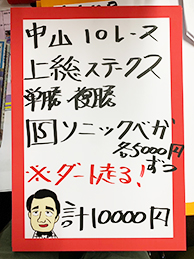 中山10レース
上総ステークス
単勝 複勝
15 ソニックベガ
各5000円
ずつ
※ダート走る!
計10000円